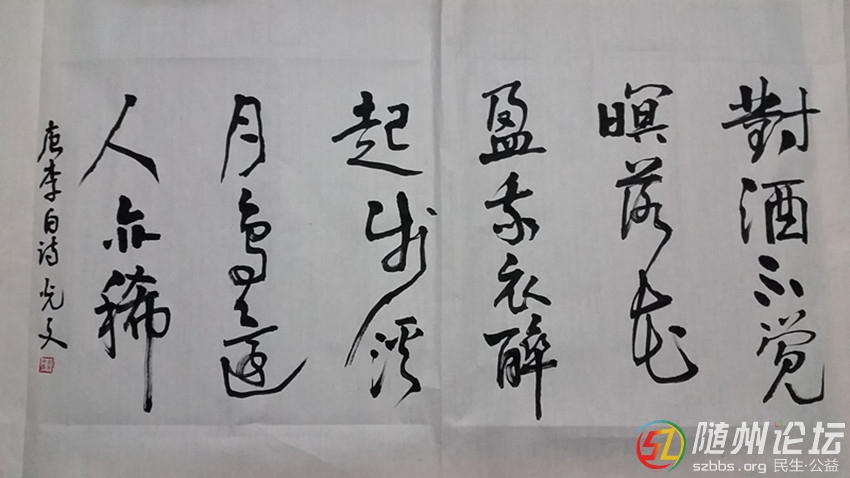 對酒不覺
暝落花
盈我衣醉
起步溪
月鳥還
人亦稀
唐李白诗 光文
随州论坛
szbbs.org 民生·公益